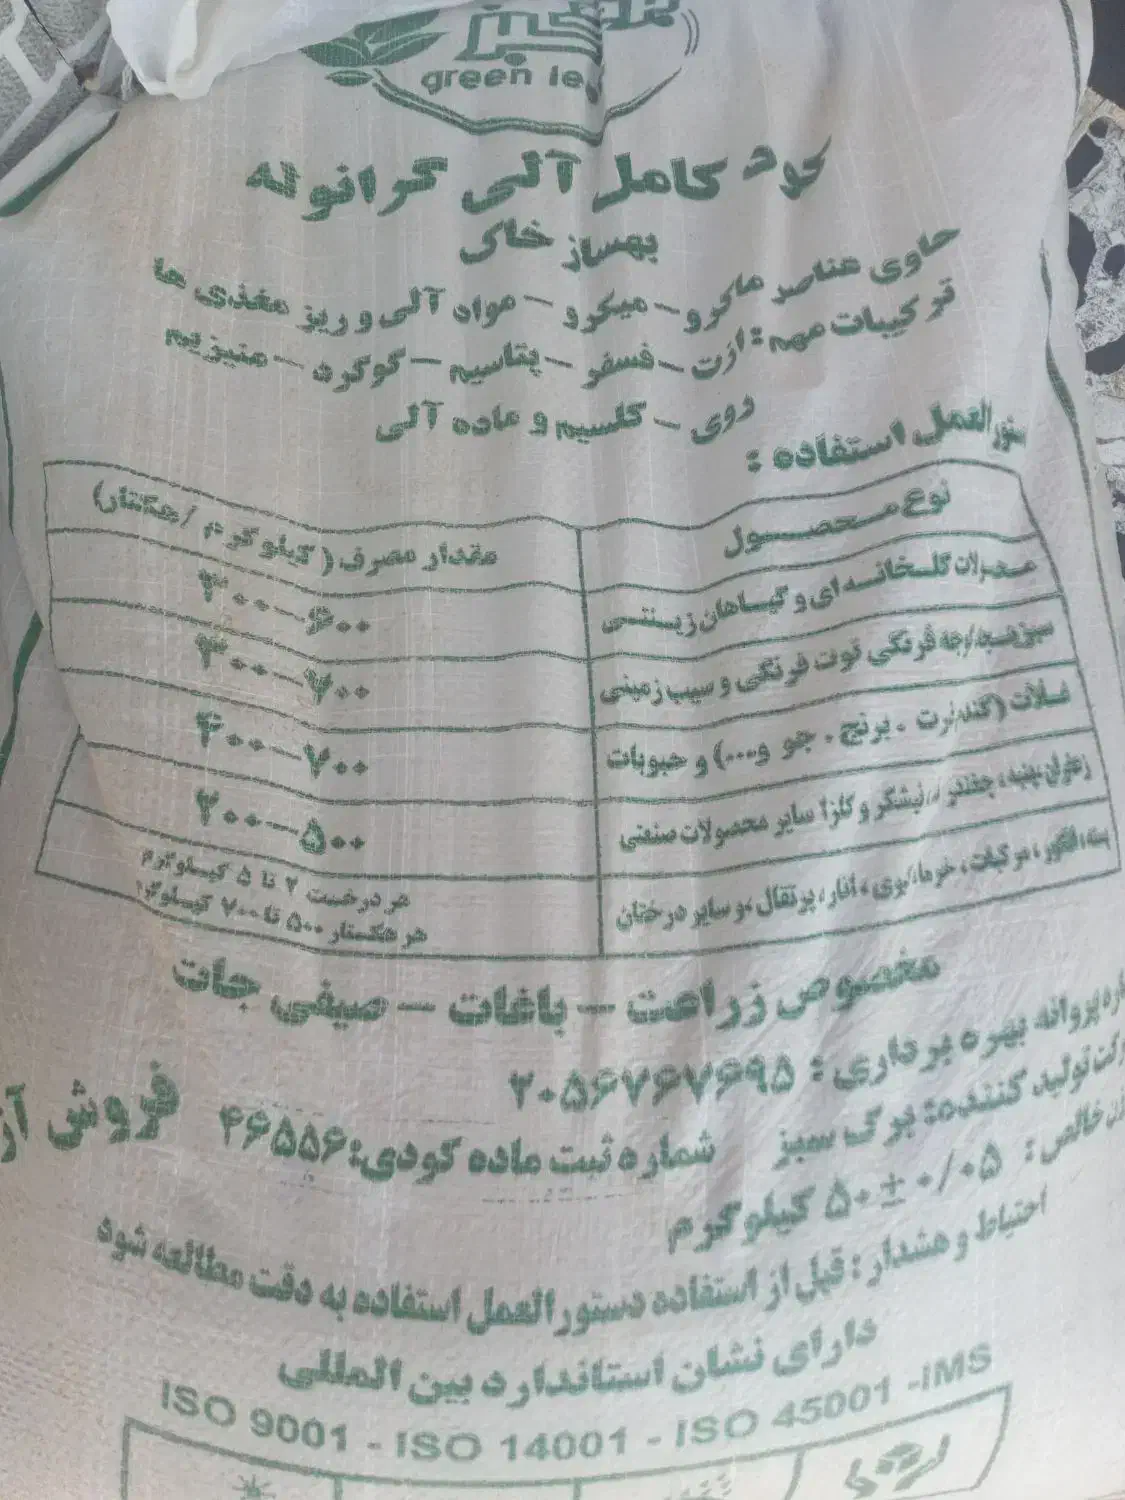 برگ سبز
green leaf
کود کامل آلی گرانوله
بهساز خاک
حاوی عناصر ماکرو – میکرو – مواد آلی و ریز مغذی ها
ترکیبات مهم : ازت – فسفر – پتاسیم – گوگرد – منیزیم
روی – کلسیم و ماده آلی
دستورالعمل استفاده :
نوع محصول
مقدار مصرف ( کیلو گرم / هکتار)
محصولات گلخانه ای و گیاهان زینتی
۳۰۰–۶۰۰
گوجه فرنگی توت فرنگی و سیب زمینی
۳۰۰–۷۰۰
غلات (گندم، ذرت ، برنج ، جو و....) و حبوبات
۴۰۰–۷۰۰
چغندر ، نیشکر و کلزا سایر محصولات صنعتی
۲۰۰–۵۰۰
پسته، انگور ، مرکبات ، خرما، انار، پرتقال ،و سایر درختان
هر درخت ۲ تا ۵ کیلوگرم
هر هکتار ۵۰۰ تا ۷۰۰ کیلوگرم
مخصوص زراعت – باغات – صیفی جات
پروانه بهره برداری : ۲۰۵۶۷۶۷۶۹۵
شرکت تولید کننده: برگ سبز شماره ثبت ماده کودی: ۴۶۵۵۶
فروش آز
وزن خالص : ۵۰±۰/۰۵ کیلو گرم
احتیاط و هشدار : قبل از استفاده دستورالعمل استفاده به دقت مطالعه شود
دارای نشان استاندارد بین المللی
ISO 9001 - ISO 14001 - ISO 45001 -IMS